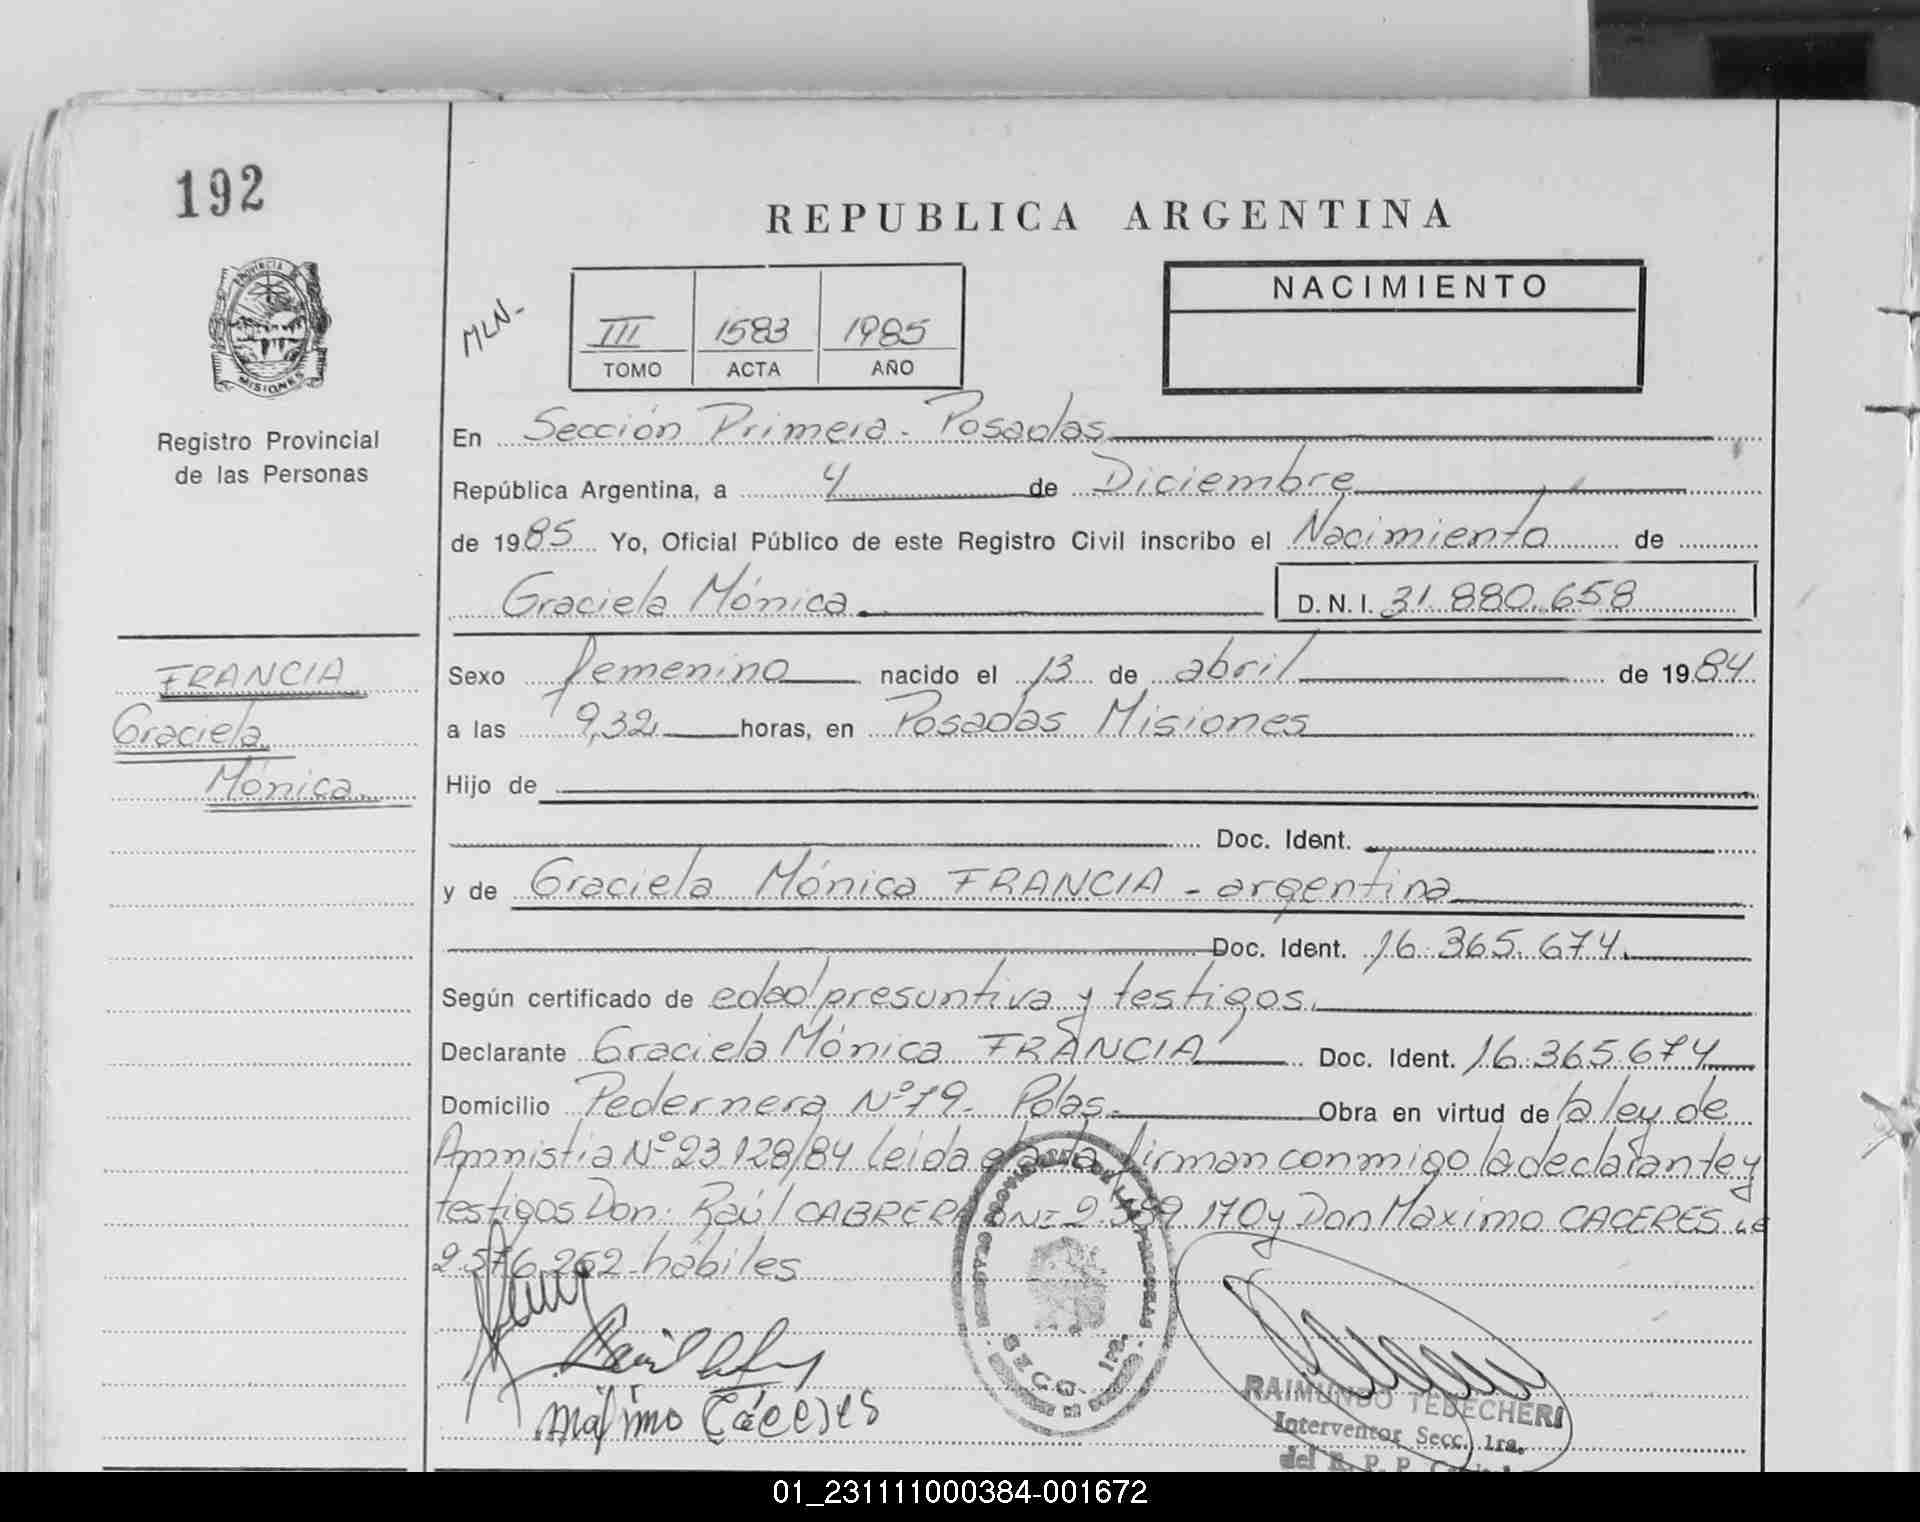 192
REPUBLICA ARGENTINA
PROVINCIA DE
MISIONES
Registro Provincial
de las Personas
MLN-
III 1583 1985
TOMO ACTA AÑO
NACIMIENTO
En Sección Primera. Posadas
República Argentina, a 4 de Diciembre
de 1985 Yo, Oficial Público de este Registro Civil inscribo el Nacimiento de
Graciela Mónica. D.N.I. 31.880.658
FRANCIA
Graciela
Mónica.
Sexo femenino nacido el 13 de abril de 1984
a las 9,32 horas, en Posadas Misiones
Hijo de
Doc. Ident.
y de Graciela Mónica FRANCIA - argentina
Doc. Ident. 16.365.674.
Según certificado de edad presuntiva y testigos.
Declarante Graciela Mónica FRANCIA Doc. Ident. 16.365.674
Domicilio Pedernera Nº 79. Pdas. Obra en virtud de la ley de
Amnistia Nº 23.128/84 leida el acta firman conmigo la declarante y
testigos Don: Raúl CABRERA DNI 2.589.170 y Don Máximo CACERES LE
2.576.252 habiles
Máximo Cáceres
REGISTRO PROVINCIAL DE LAS PERSONAS
SECC. 1ra.
RAIMUNDO TEDECHERI
Interventor Secc. 1ra.
del R. P. P.
01_231111000384-001672